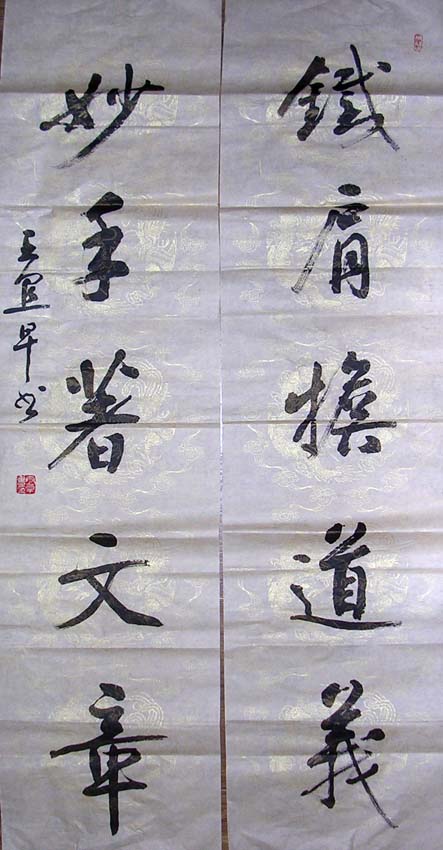 鐵肩擔道義
妙手著文章
王宜早书